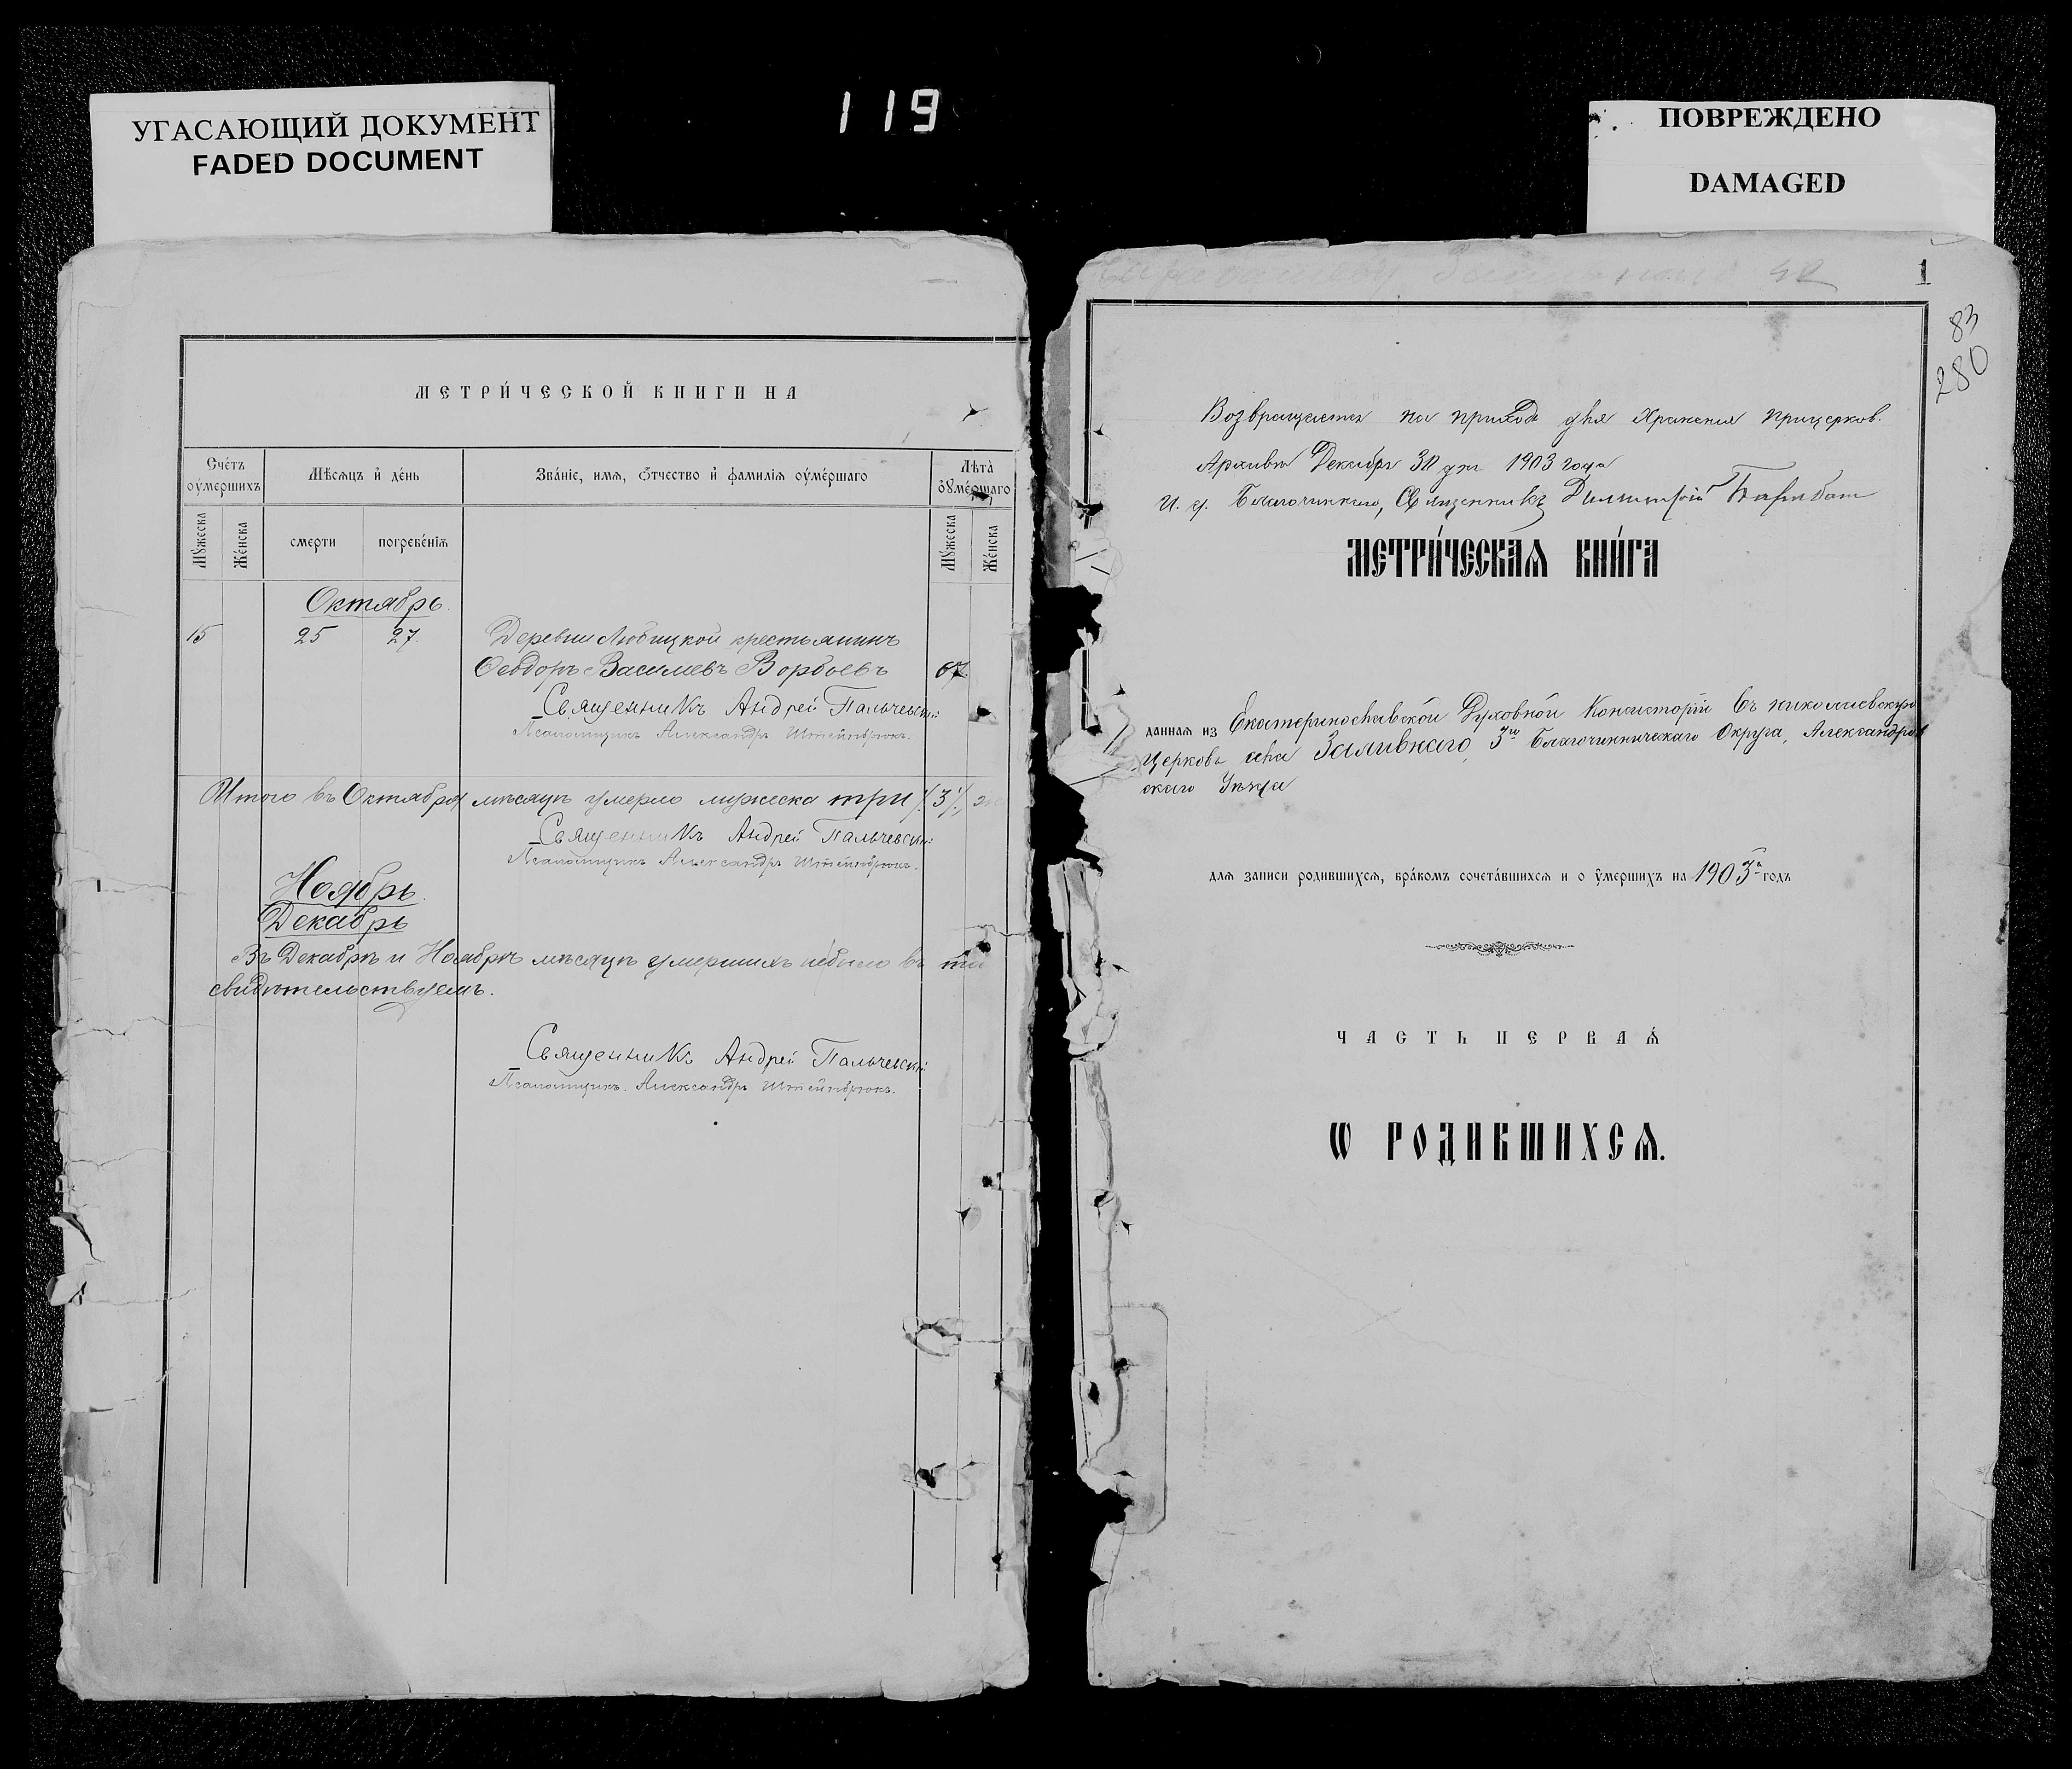 119
УГАСАЮЩИЙ ДОКУМЕНТ
FADED DOCUMENT
ПОВРЕЖДЕНО
DAMAGED
МЕТРИ́ЧЕСКОЙ КНИГИ НА
Сче́тъ оуме́ршихъ
Мѣсѧцъ и҆ де́нь
Зва́нїе, имѧ, ѻ҆тчество и҆ фамилїѧ оуме́ршаго
Лѣта̀ оуме́ршаго
Мꙋжеска
Же́нска
смерти
погребе́нїѧ
Мꙋжеска
Же́нска
Октябрь.
15 25 27. Деревни Любицкой крестьянинъ
Ѳеодоръ Василевъ Ворбьевъ 67
Священникъ Андрей Пальчевскій
Псаломщикъ Александръ Штейнбрюкъ.
Итого въ Октябрѣ мѣсяцѣ умерло мужеска три /3/
Священникъ Андрей Пальчевскій
Псаломщикъ Александръ Штейнбрюкъ.
Ноябрь.
Декабрь
Въ Декабрѣ и Ноябрѣ мѣсяцѣ умершихъ небыло въ
свидѣтельствуемъ.
Священникъ Андрей Пальчевскій
Псаломщикъ. Александръ Штейнбрюкъ.
1
83
280
Возвращается на приходъ для храненія прицерков.
Архива Декабря 30 дня 1903 года
И. д. Благочиннаго, Священникъ Димитрій
МЕТРИ́ЧЕСКАѦ КНИ́ГА
даннаѧ из Екатеринославской Духовной Консисторіи въ николаевскую
Церковь села Заливнаго, 3го Благочинническаго Округа, Александров
скаго Уѣзда
длѧ записи родившихсѧ, бра́комъ сочета́вшихсѧ и о ᲂу҆мершихъ на 1903й годъ
ЧАСТЬ ПЕРВАѦ́
Ѡ РОДИВШИХСѦ.